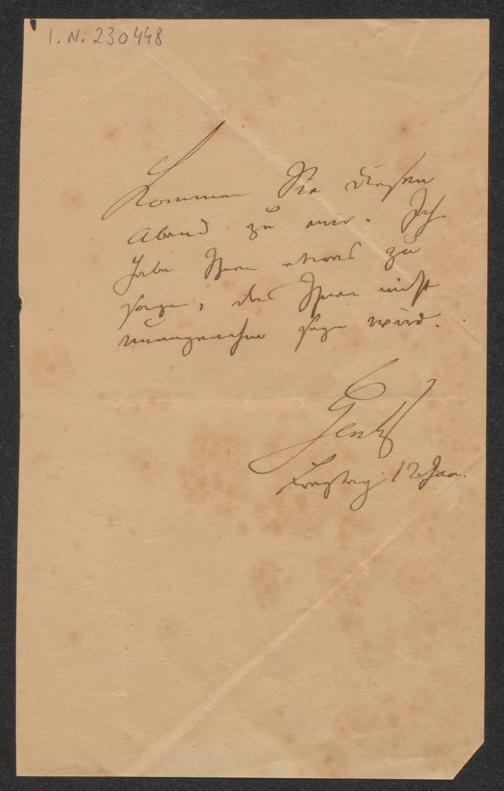 I. N. 230448
Kommen Sie diesen
Abend zu mir. Ich
habe Ihnen etwas zu
sagen, das Ihnen nicht
unangenehm seyn wird.
Gentz
Freytag 12 Jan.